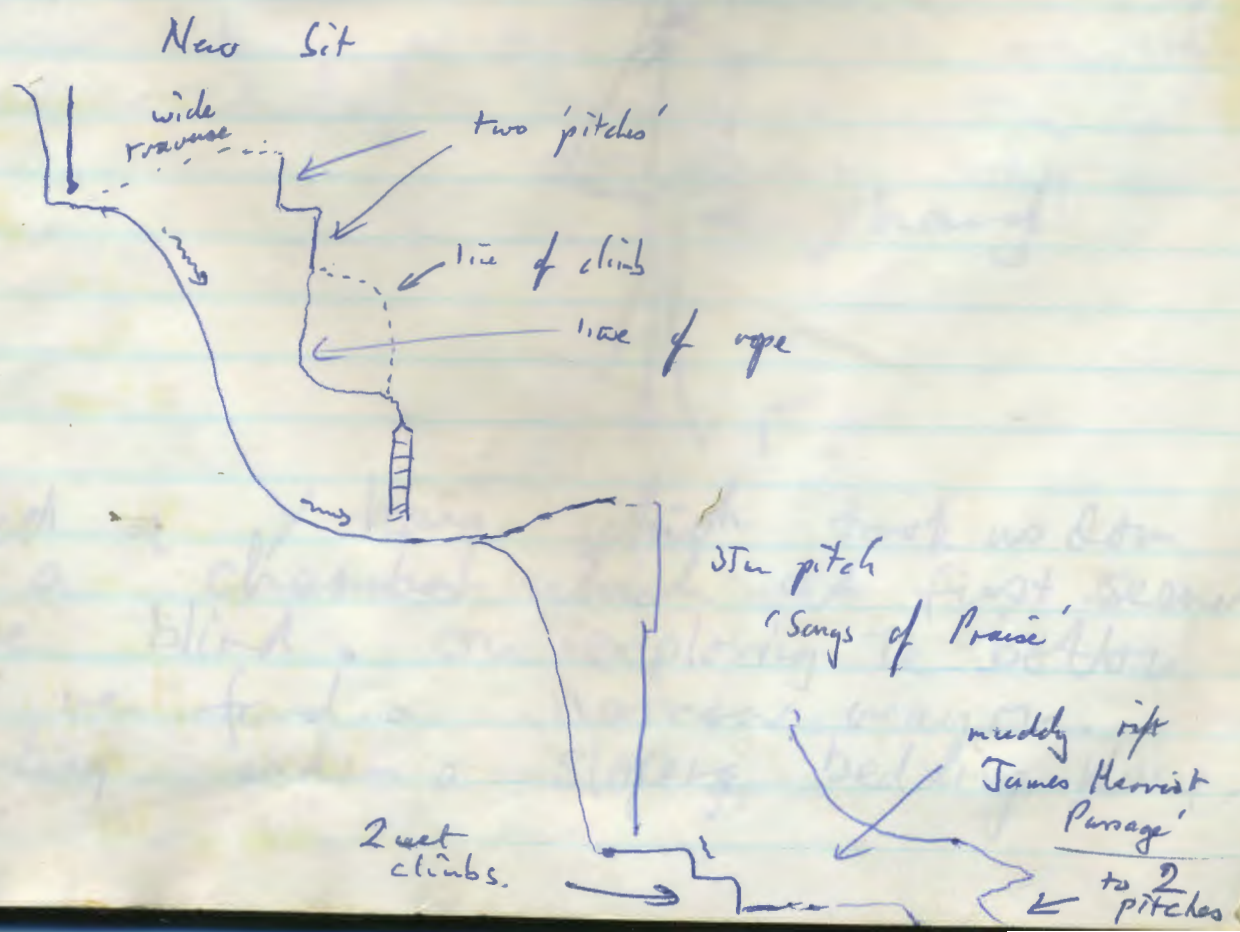 New Bit
wide
traverse
two 'pitches'
line of climb
line of rope
35m pitch
'Songs of Praise'
muddy rift
James Herriot
Passage'
2 wet
climbs.
to 2
pitches